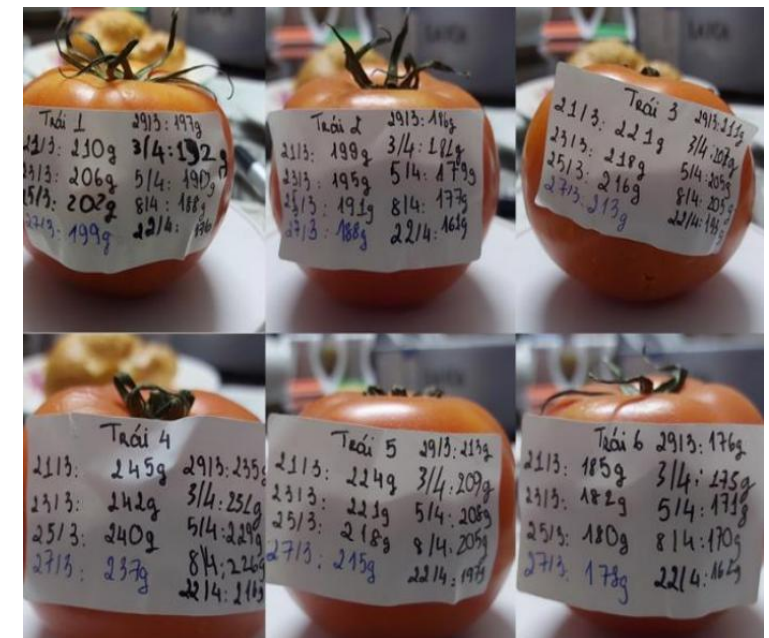 Trái 1
21/3: 210g
23/3: 206g
25/3: 202g
27/3: 199g
29/3: 197g
3/4: 192g
5/4: 190g
8/4: 188g
22/4:
Trái 2
21/3: 199g
23/3: 195g
25/3: 191g
27/3: 188g
29/3: 186g
3/4: 181g
5/4: 179g
8/4: 177g
22/4:
Trái 3
21/3: 221g
23/3: 218g
25/3: 216g
27/3: 213g
29/3: 211g
3/4:
5/4: 205g
8/4: 205g
22/4:
Trái 4
21/3: 245g
23/3: 242g
25/3: 240g
27/3: 237g
29/3: 235g
3/4: 231g
5/4: 229g
8/4: 226g
22/4:
Trái 5
21/3: 224g
23/3: 221g
25/3: 218g
27/3: 215g
29/3: 213g
3/4: 209g
5/4:
8/4: 205g
22/4: 197g
Trái 6
21/3: 185g
23/3: 182g
25/3: 180g
27/3: 178g
29/3: 176g
3/4: 173g
5/4: 171g
8/4: 170g
22/4: